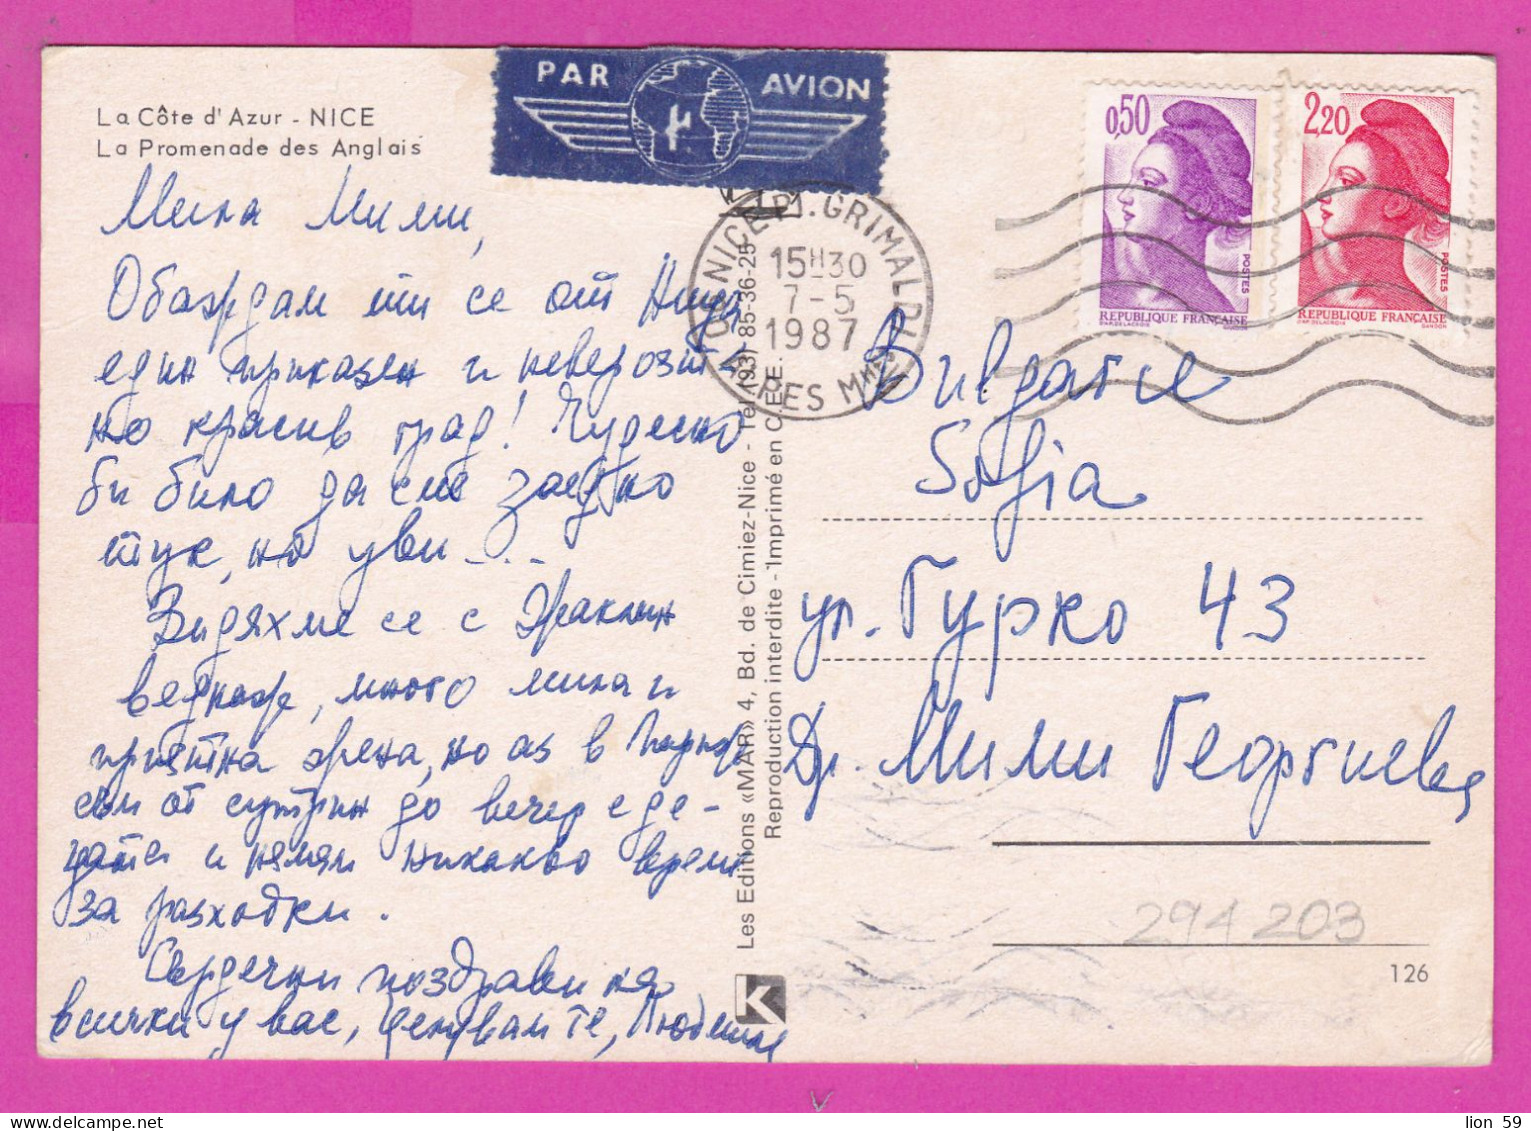 La Côte d'Azur - NICE
La Promenade des Anglais
PAR AVION
NICE PL. GRIMALDI
15H30
7-5
1987
ALPES MMES
0,50
POSTES
REPUBLIQUE FRANÇAISE
2,20
POSTES
REPUBLIQUE FRANÇAISE
Мила Мими,
Обаждам ти се от Ница
един приказен и неверояте-
но красив град! Чудесно
би било да сме заедно
тук, но уви ...
Видяхме се с Ераклин
веднаж, много мила и
приятна жена, но аз в Париж
съм от сутрин до вечер с де-
цата и нямам никакво време
за разходки.
Сърдечни поздрави на
всички у вас, целувам те, Людмила
Les Editions «MAR» 4, Bd. de Cimiez-Nice - Tel (93) 85-36-25
Reproduction interdite - Imprimé en C.E.E.
Bulgarie
Sofia
ул. Гурко 43
Др. Мими Георгиева
294203
126
K
lion 59